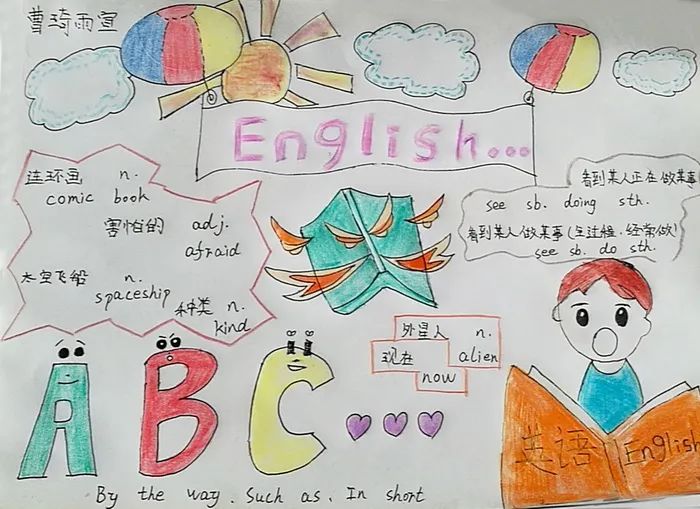 曹琦雨宣
English...
连环画 n.
comic book
害怕的 adj.
afraid
太空飞船 n.
spaceship
种类 n.
kind
看到某人正在做某事
see sb. doing sth.
看到某人做某事(全过程.经常做)
see sb. do sth.
外星人 n.
alien
现在
now
ABC
英语 English
By the way. Such as. In short